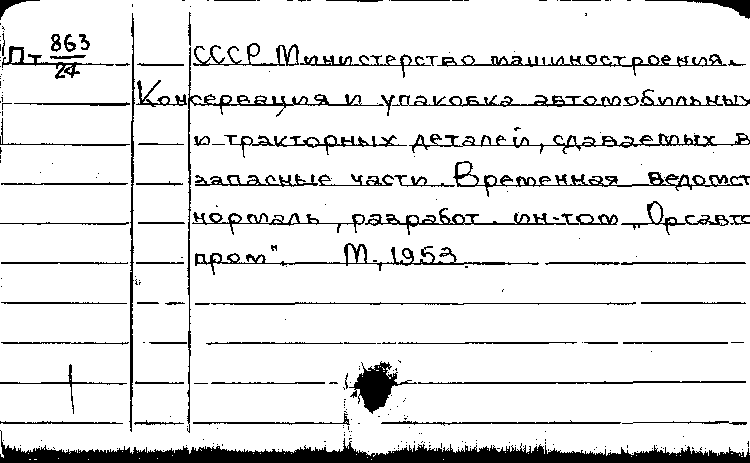 Пт 863/24
СССР Министерство машиностроения.
Консервация и упаковка автомобильных
и тракторных деталей, сдаваемых в
запасные части. Временная ведомст
нормаль, разработ. ин-том „Оргавто
пром". М., 1953.